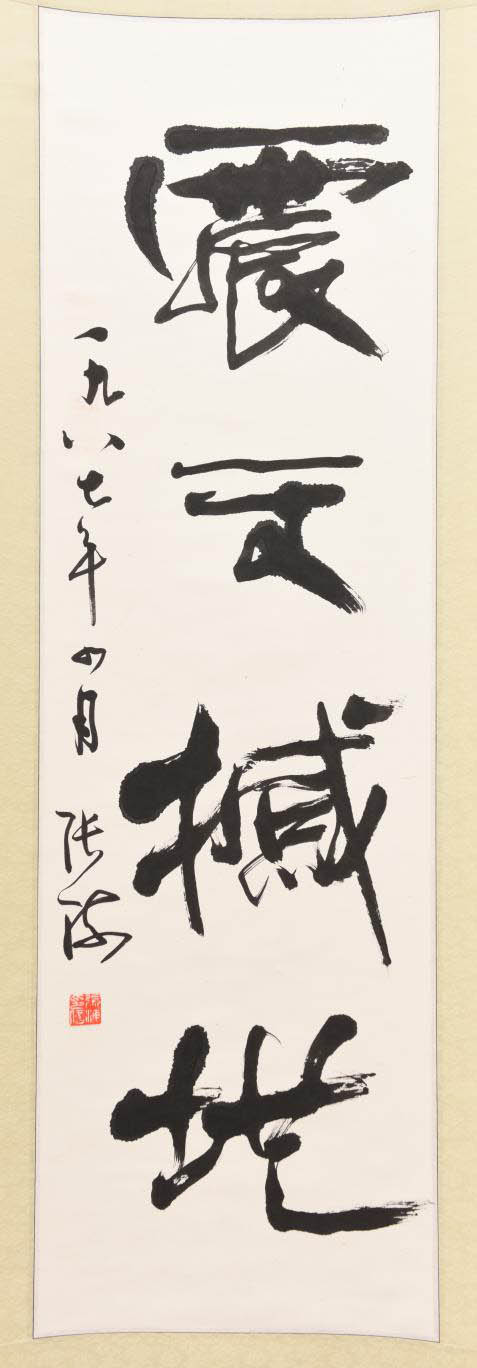 震天撼地
一九八七年四月
张海